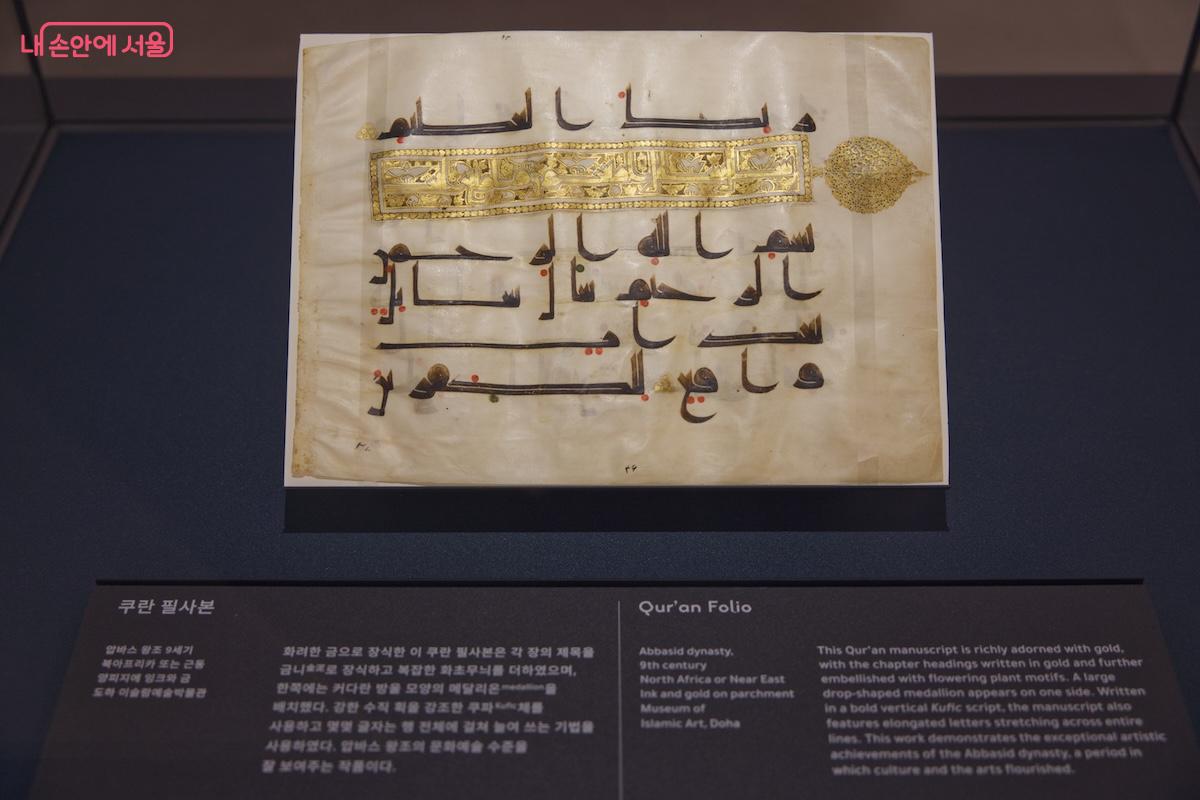 내 손안에 서울
ربك العظيم
بسم الله الرحمن
الرحيم سال سائل
بعذاب
واقع للكفرين
٣٦
쿠란 필사본
압바스 왕조 9세기
북아프리카 또는 근동
양피지에 잉크와 금
도하 이슬람예술박물관
화려한 금으로 장식한 이 쿠란 필사본은 각 장의 제목을
금니金泥로 장식하고 복잡한 화초무늬를 더하였으며,
한쪽에는 커다란 방울 모양의 메달리온medallion을
배치했다. 강한 수직 획을 강조한 쿠파Kufic체를
사용하고 몇몇 글자는 행 전체에 걸쳐 늘여 쓰는 기법을
사용하였다. 압바스 왕조의 문화예술 수준을
잘 보여주는 작품이다.
Qur'an Folio
Abbasid dynasty,
9th century
North Africa or Near East
Ink and gold on parchment
Museum of
Islamic Art, Doha
This Qur'an manuscript is richly adorned with gold,
with the chapter headings written in gold and further
embellished with flowering plant motifs. A large
drop-shaped medallion appears on one side. Written
in a bold vertical Kufic script, the manuscript also
features elongated letters stretching across entire
lines. This work demonstrates the exceptional artistic
achievements of the Abbasid dynasty, a period in
which culture and the arts flourished.